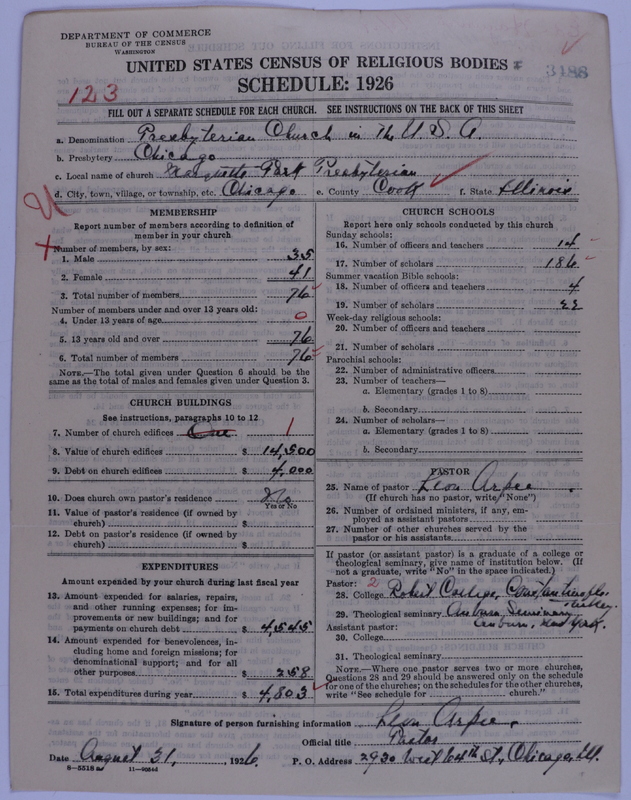 DEPARTMENT OF COMMERCE
BUREAU OF THE CENSUS
WASHINGTON
UNITED STATES CENSUS OF RELIGIOUS BODIES
3488
SCHEDULE: 1926
123
FILL OUT A SEPARATE SCHEDULE FOR EACH CHURCH. SEE INSTRUCTIONS ON THE BACK OF THIS SHEET
a. Denomination Presbyterian Church in the U. S. A.
b. Presbytery Chicago
c. Local name of church Marquette Park Presbyterian
d. City, town, village, or township, etc. Chicago e. County Cook f. State Illinois
MEMBERSHIP
Report number of members according to definition of
member in your church
Number of members, by sex:
1. Male 35
2. Female 41
3. Total number of members 76
Number of members under and over 13 years old:
4. Under 13 years of age 0
5. 13 years old and over 76
6. Total number of members 76
NOTE.—The total given under Question 6 should be
same as the total of males and females given under Question 3.
CHURCH BUILDINGS
See instructions, paragraphs 10 to 12
7. Number of church edifices One 1
8. Value of church edifices $ 14,500
9. Debt on church edifices $ 4,000
10. Does church own pastor's residence No
Yes or No
11. Value of pastor's residence (if owned by
church) $
12. Debt on pastor's residence (if owned by
church) $
EXPENDITURES
Amount expended by your church during last fiscal year
13. Amount expended for salaries, repairs,
and other running expenses; for im-
provements or new buildings; and for
payments on church debt $ 4,545
14. Amount expended for benevolences, in-
cluding home and foreign missions; for
denominational support; and for all
other purposes $ 258
15. Total expenditures during year $ 4,803
CHURCH SCHOOLS
Report here only schools conducted by this church
Sunday schools:
16. Number of officers and teachers 14
17. Number of scholars 186
Summer vacation Bible schools:
18. Number of officers and teachers 4
19. Number of scholars
Week-day religious schools:
20. Number of officers and teachers
21. Number of scholars
Parochial schools:
22. Number of administrative officers
23. Number of teachers—
a. Elementary (grades 1 to 8)
b. Secondary
24. Number of scholars—
a. Elementary (grades 1 to 8)
b. Secondary
PASTOR
25. Name of pastor Leon Arpee
(If church has no pastor, write "None")
26. Number of ordained ministers, if any, em-
ployed as assistant pastors
27. Number of other churches served by the
pastor or his assistants
If pastor (or assistant pastor) is a graduate of a college or
theological seminary, give name of institution below. (If
not a graduate, write "No" in the space indicated.)
Pastor: 2
28. College Robert College, Constantinople, Turkey.
29. Theological seminary Auburn Seminary, Auburn, New York.
Assistant pastor:
30. College
31. Theological seminary
NOTE.—Where one pastor serves two or more churches,
Questions 28 and 29 should be answered only on the schedule
for one of the churches; on the schedules for the other churches,
write "See schedule for church."
Signature of person furnishing information Leon Arpee.
Official title Pastor
Date August 31, 1926 P. O. Address 2930 West 64th St., Chicago, Ill.
8—5518 11—9054d